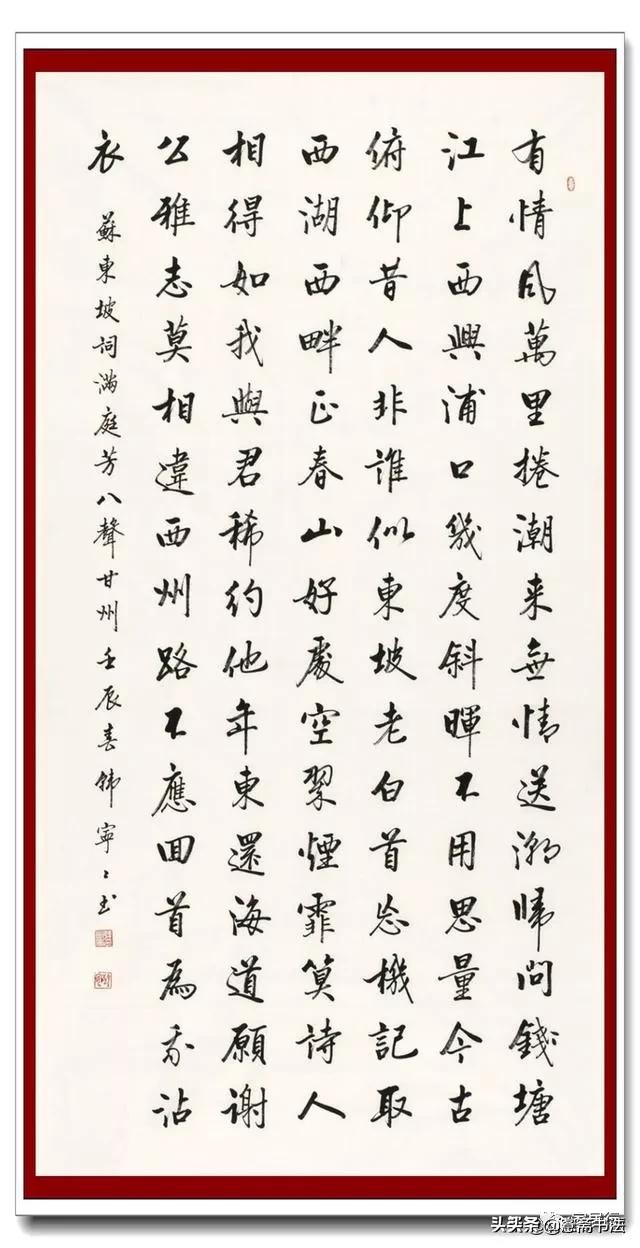 有情风萬里捲潮来無情送潮歸問錢塘
江上西興浦口幾度斜暉不用思量今古
俯仰昔人非誰似東坡老白首忘機記取
西湖西畔正春山好處空翠煙霏算詩人
相得如我與君稀約他年東還海道願謝
公雅志莫相違西州路不應回首為我沾
衣
蘇東坡詞滿庭芳八聲甘州壬辰春 寧〻书
头条 书法